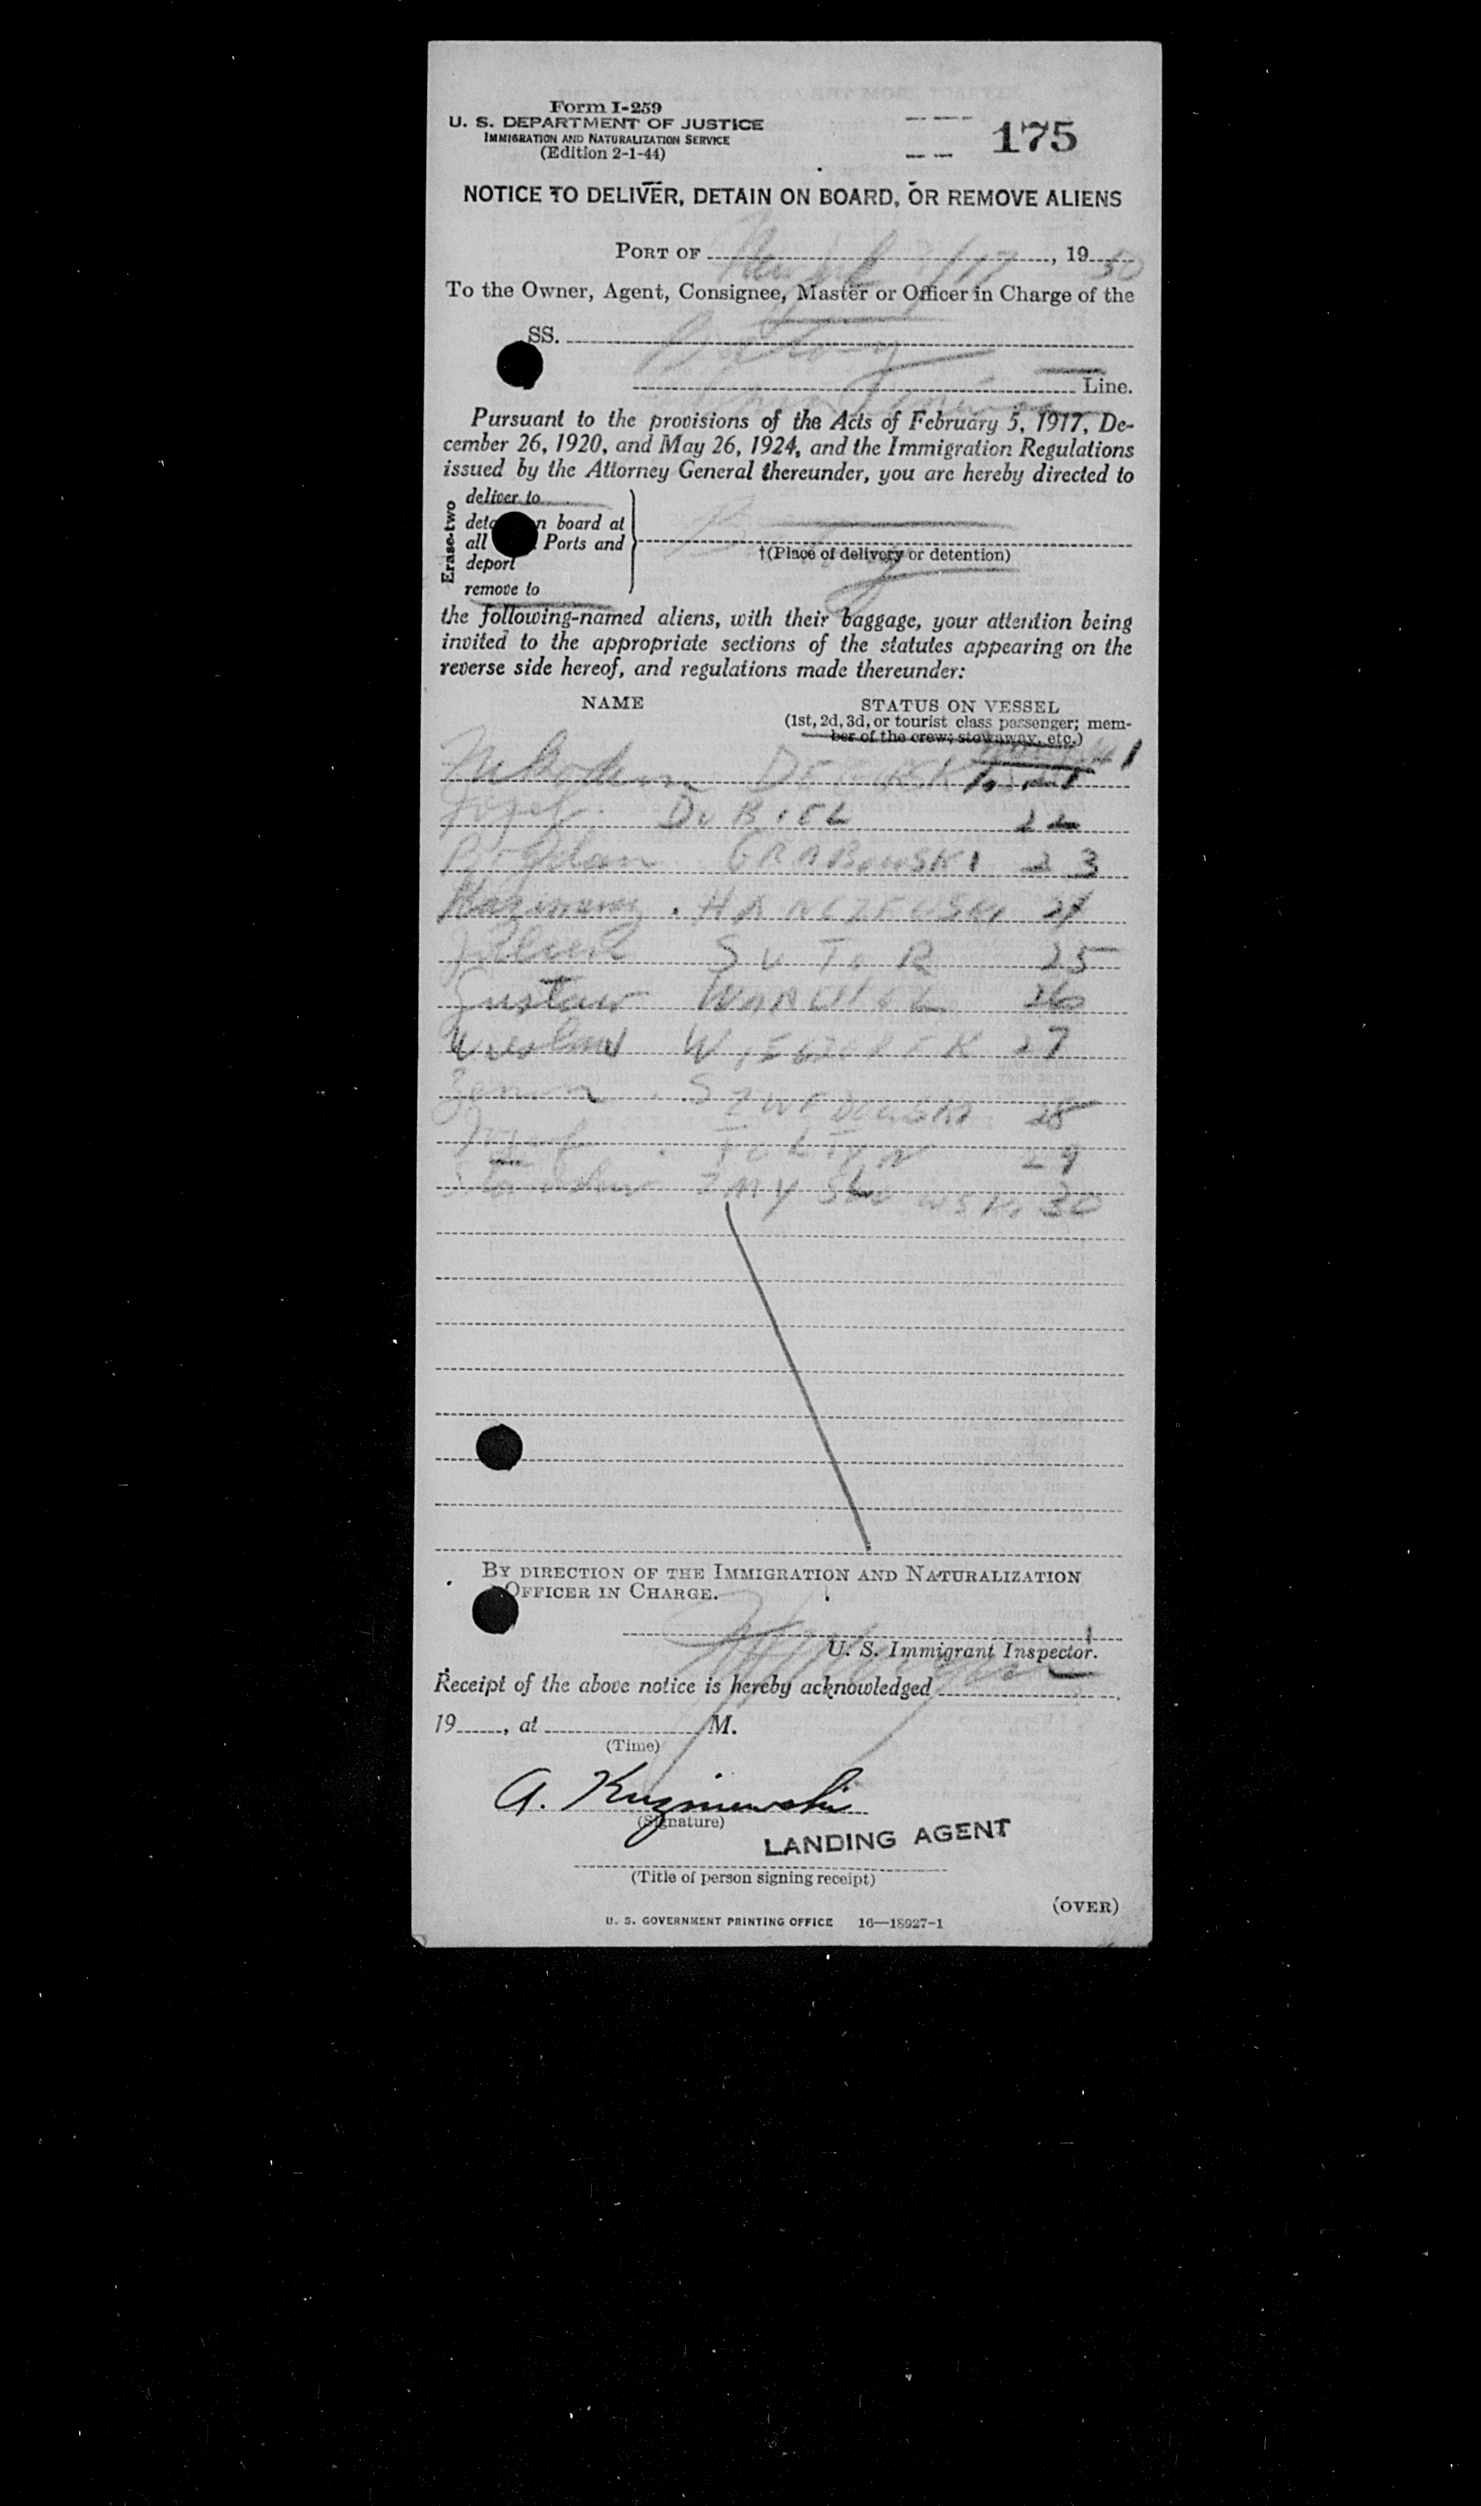 Form I-259
U. S. DEPARTMENT OF JUSTICE
IMMIGRATION AND NATURALIZATION SERVICE
(Edition 2-1-44)
175
NOTICE TO DELIVER, DETAIN ON BOARD, OR REMOVE ALIENS
PORT OF New York /17, 1950
To the Owner, Agent, Consignee, Master or Officer in Charge of the
SS. Batory
Line.
Pursuant to the provisions of the Acts of February 5, 1917, De-
cember 26, 1920, and May 26, 1924, and the Immigration Regulations
issued by the Attorney General thereunder, you are hereby directed to
Erase two
deliver to
board at
all Ports and
deport
remove to
†(Place of delivery or detention)
the following-named aliens, with their baggage, your attention being
invited to the appropriate sections of the statutes appearing on the
reverse side hereof, and regulations made thereunder:
NAME STATUS ON VESSEL
(1st, 2d, 3d, or tourist class passenger; mem-
ber of the crew; stowaway, etc.)
21
Jozef DUBIEL 22
Bogdan GRABOWSKI 23
Kazimierz HANCZEWSKI 24
SUTOR 25
Gustaw 26
27
Zenon 28
29
30
BY DIRECTION OF THE IMMIGRATION AND NATURALIZATION
OFFICER IN CHARGE.
U. S. Immigrant Inspector.
Receipt of the above notice is hereby acknowledged
19, at M.
(Time)
A. Kuzniewski
(Signature)
LANDING AGENT
(Title of person signing receipt)
(OVER)
U. S. GOVERNMENT PRINTING OFFICE 16—18927-1